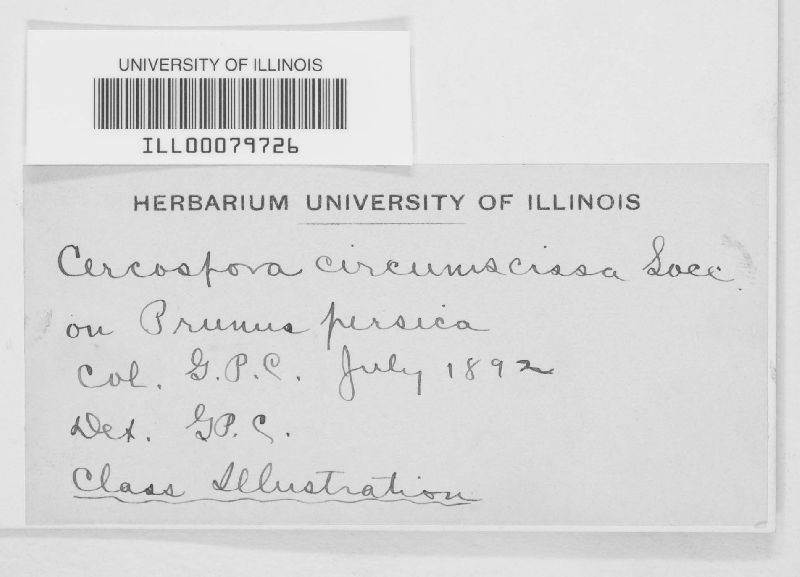 UNIVERSITY OF ILLINOIS
ILL00079726
HERBARIUM UNIVERSITY OF ILLINOIS
Cercospora circumscissa Sacc.
on Prunus persica
Col. G.P.C. July 1892
Det. G.P.C.
Class Illustration